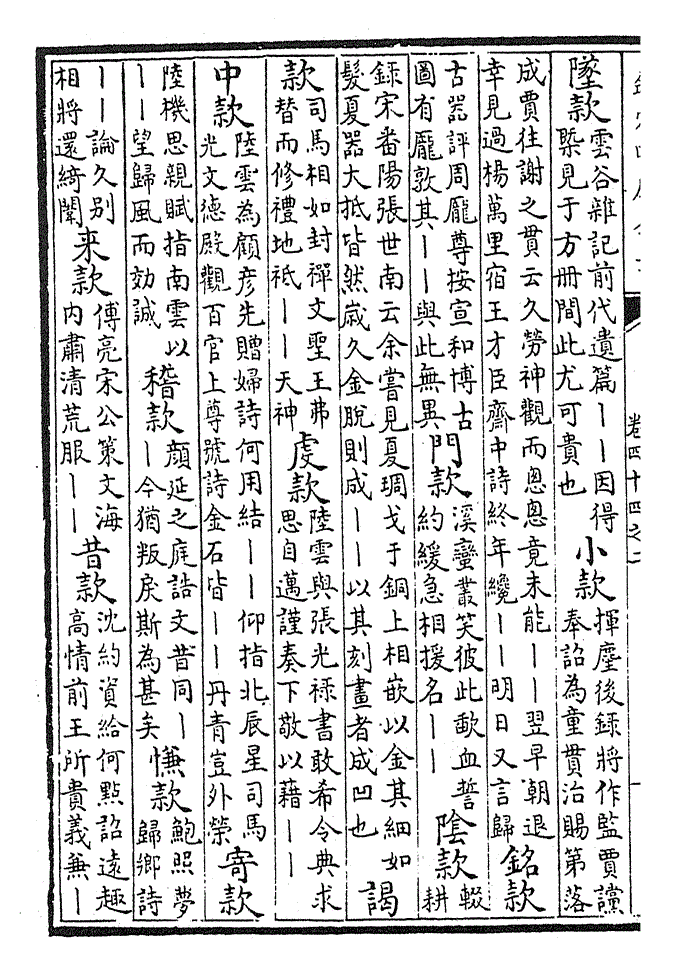 卷四十四之二
墜款雲谷雜記前代遺篇——因得
槩見于方冊間此尤可貴也
小款揮麈後錄將作監賈讜
奉詔為童貫治賜第落
成賈往謝之貫云久勞神觀而悤悤竟未能——翌早朝退
幸見過楊萬里宿王才臣齋中詩終年纔——明日又言歸
銘款
古器評周龎尊按宣和博古
圖有龎敦其——與此無異
門款溪蠻叢笑彼此歃血誓
約緩急相援名——
陰款輟
耕
錄宋番陽張世南云余嘗見夏琱戈于銅上相嵌以金其細如
髮夏器大抵皆然歲久金脫則成——以其刻畫者成凹也
謁
款司馬相如封禪文聖王弗
替而修禮地祗——天神
虔款陸雲與張光祿書敢希令典求
思自邁謹奏下敬以藉——
中款陸雲為顧彥先贈婦詩何用結——仰指北辰星司馬
光文德殿觀百官上尊號詩金石皆——丹青豈外榮
寄款
陸機思親賦指南雲以
——望歸風而効誠
稽款顔延之庭誥文昔同—
—今猶叛戾斯為甚矣
慊款鮑照夢
歸鄉詩
——論久別
相將還綺闥
来款傅亮宋公策文海
内肅清荒服——
昔款沈約資給何點詔遠趣
高情前王所貴義兼—